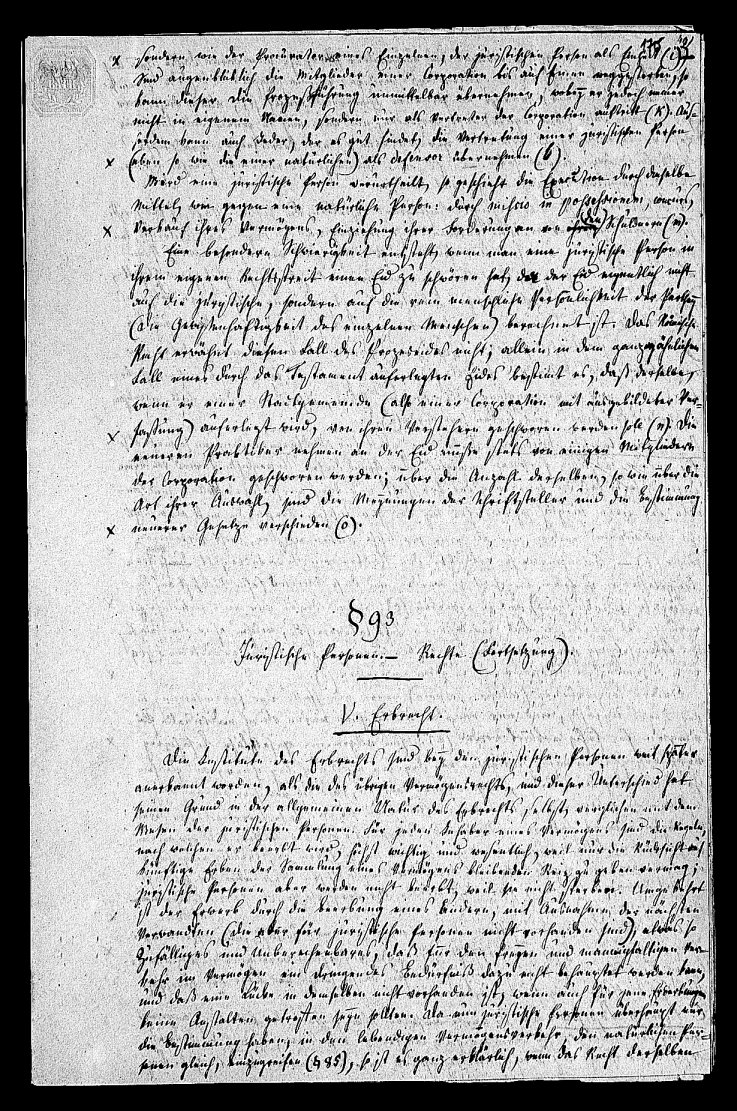 175
x sondern, wie der Procurator eines Einzelnen, der juristischen Person als Einheit (i)
Sind augenblicklich die Mitglieder einer Corporation bis auf Einen weggestorben, so
kann dieser die Prozeßführung unmittelbar übernehmen, wobey er jedoch immer
nicht in eigenem Namen, sondern nur als Vertreter der Corporation auftritt (k). Aus-
serdem kann auch Jeder, der es gut findet, die Vertretung einer juristischen Person
x (eben so wie die einer natürlichen) als defensor übernehmen (l).
Wird eine juristische Person verurtheilt, so geschieht die Execution durch dieselbe
Mittel wie gegen eine natürliche Person: durch missio in possessionem,
x Verkauf ihres Vermögens, Einziehung ihrer Forderungen von den Schuldnern (m).
Eine besondere Schwierigkeit entsteht, wenn eine juristische Person in
ihrem eigenen Rechtsstreit einen Eid zu schwören hat, da der Eid eigentlich nicht
auf die juristische, sondern auf die rein menschliche Persönlichkeit der Parthey
(die Gewissenhaftigkeit des einzelnen Menschen) berechnet ist. Das Römische
Recht erwähnt diesen Fall des Prozeßeides nicht; allein in dem ganz ähnlichen
Fall eines durch das Testament auferlegten Eides bestimmt es, daß derselbe,
wenn er einer Stadtgemeinde (also einer Corporation mit ausgebildeter Ver-
x fassung) auferlegt wird, von ihren Vorstehern geschworen werden soll (n). Die
neueren Praktiker nehmen an der Eid müsse stets von einigen Mitgliedern
der Corporation geschworen werden; über die Anzahl derselben, so wie über die
Art ihrer Auswahl, sind die Meynungen der Schriftsteller und die Bestimmung
x neuerer Gesetze verschieden (o).
§ 93
Juristische Personen. — Rechte (Fortsetzung).
V. Erbrecht.
Die Institute des Erbrechts sind bey den juristischen Personen weit später
anerkannt worden, als die des übrigen Vermögensrechts, und dieser Unterschied hat
seinen Grund in der allgemeinen Natur des Erbrechts selbst, verglichen mit dem
Wesen der juristischen Personen. Für jeden Inhaber eines Vermögens sind die Regeln,
nach welchen er beerbt wird, höchst wichtig und wesentlich, weil nur die Rücksicht auf
künftige Erben der Sammlung eines Vermögens bleibenden Reiz zu geben vermag;
juristische Personen aber werden nicht beerbt, weil sie nicht sterben. Umgekehrt
ist der Erwerb durch die Beerbung eines Andern, mit Ausnahme der nächsten
Verwandten (die aber für juristische Personen nicht vorhanden sind), etwas so
Zufälliges und Unberechenbares, daß für den freyen und mannigfaltigen Ver-
kehr im Vermögen ein dringendes Bedürfniß dazu nicht behauptet werden kann,
und daß eine Lücke in demselben nicht vorhanden ist, wenn auch für jene Erwerbung
keine Anstalten getroffen seyn sollten. Da nun juristische Personen überhaupt nur
die Bestimmung haben, in den lebendigen Vermögensverkehr, den natürlichen Per-
sonen gleich, einzugreifen (§ 85), so ist es ganz erklärlich, wenn das Recht derselben